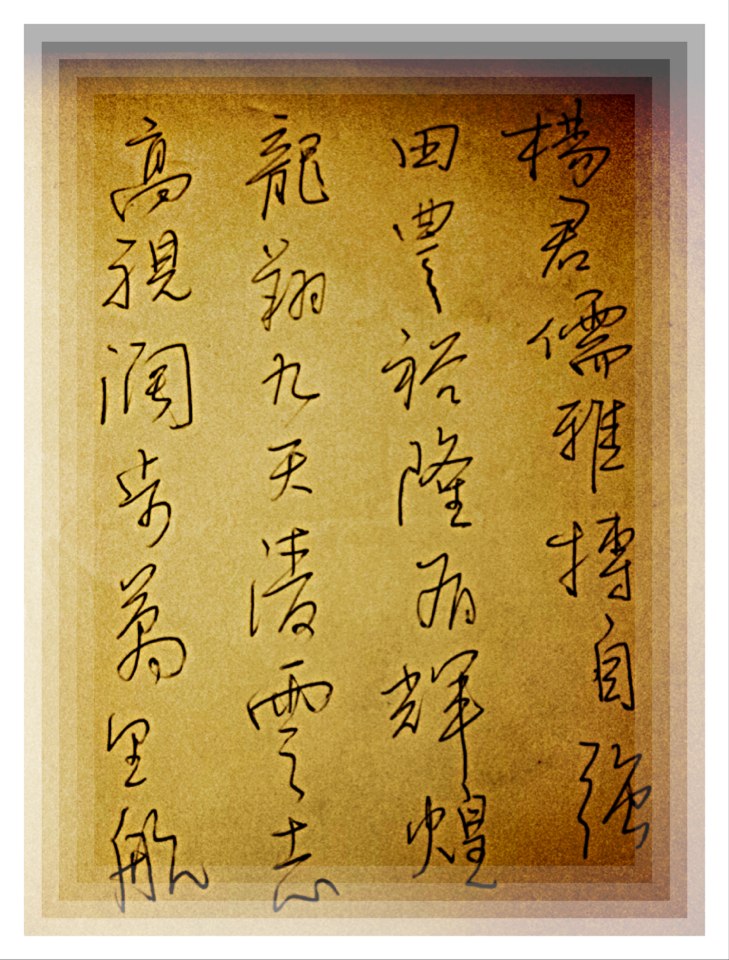 楊君儒雅搏自強
田豐裕隆有輝煌
龍翔九天淩雲志
高視闊步萬里航